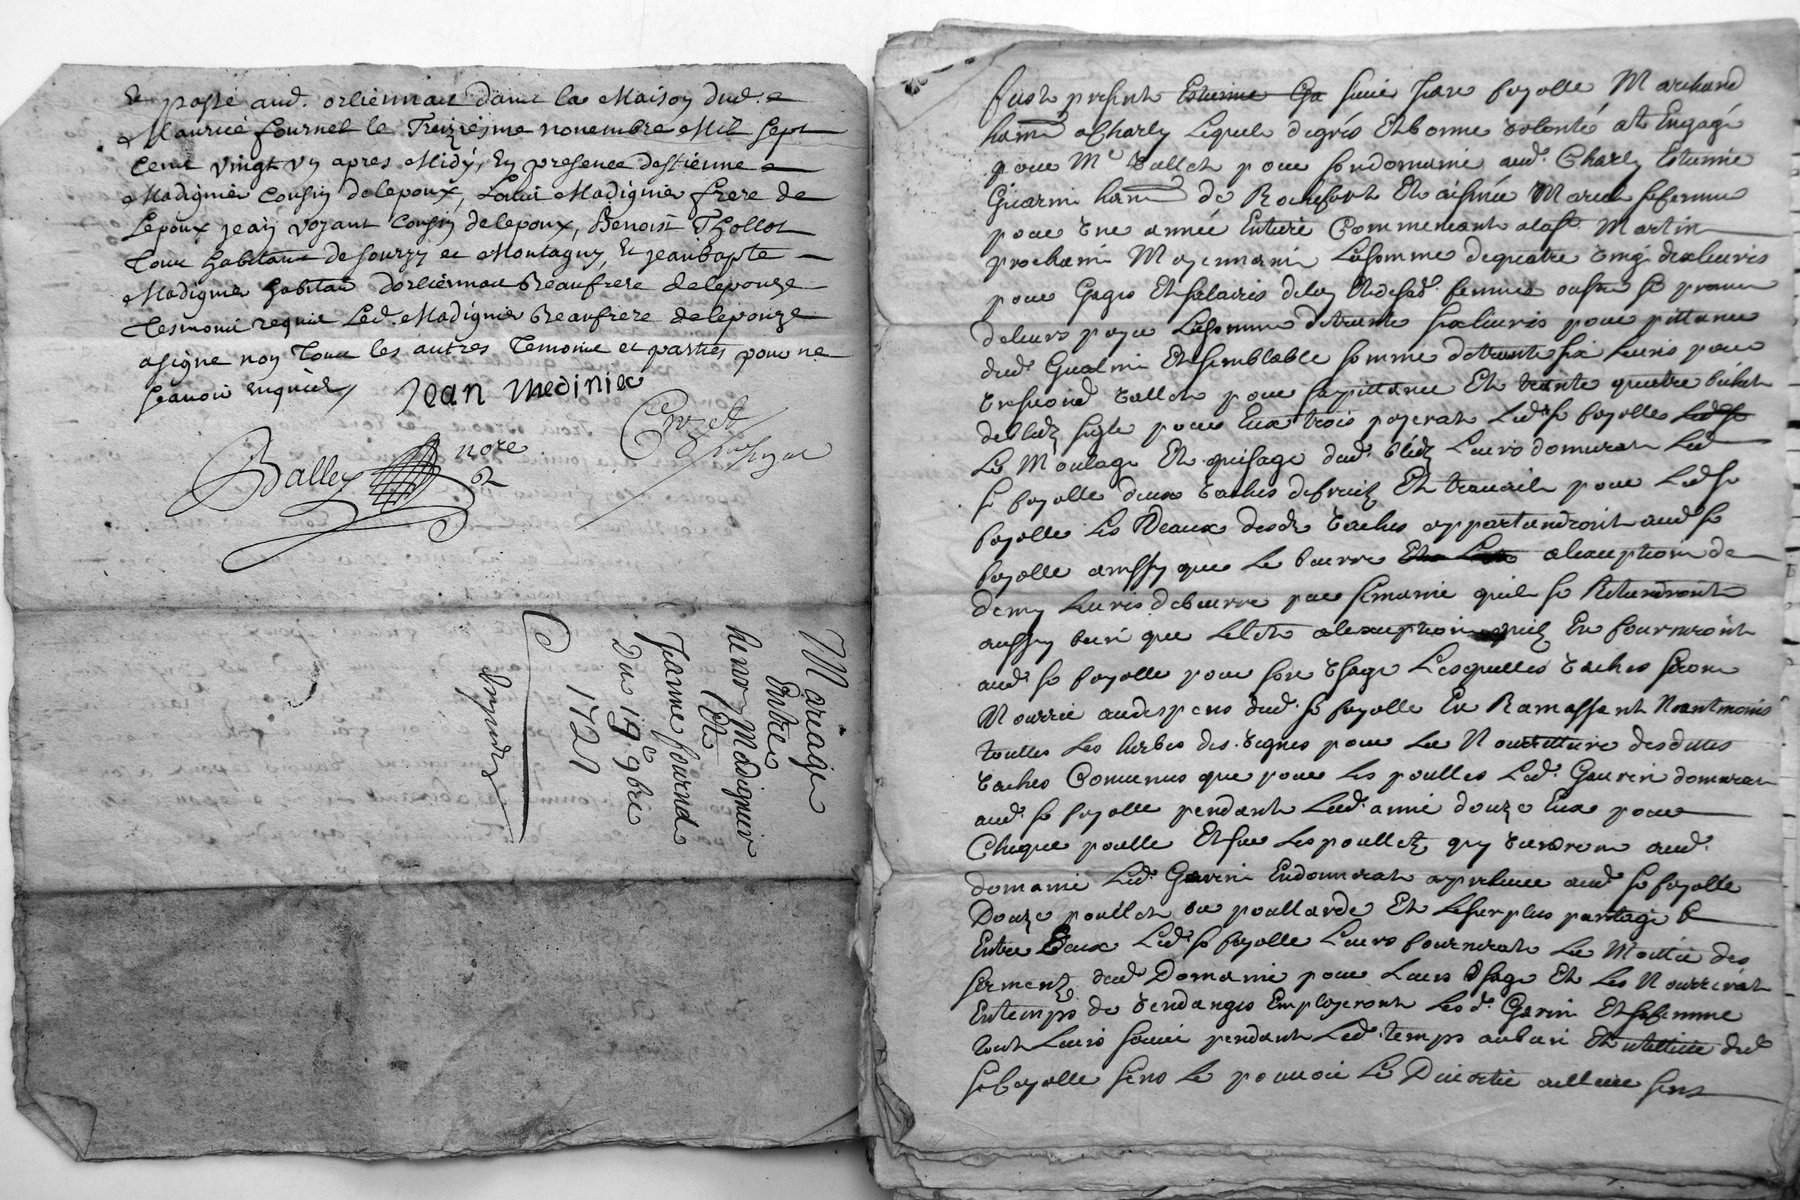 & passé aud. orliennau dans la Maison dud.
Maurice fournel le Treizièsme novembre Mil sept
Cent vingt un apres Midÿ, En presence destienne
Madignier Cousin de lepoux, Louis Madignier frere de
Lepoux jean voyant Cousin de lepoux, Benoist Thollot
Tous habitans de sourzy et Montagny, & jean bapte
Madignier habitan dorliennau Beaufrere de lepouze
Tesmoins requis Led. Madignier Beaufrere de lepouze
a signe non Tous les autres Temoins et parties pour ne
scavoir enquis
Jean Medinie
Balley nore
Mariage
Entre
Madignier
Et
Jeanne fournel
Du 19e 9bre
1721
fust présent Estienne Ga sieur Jean fayolle Marchand
hant a Charly Lequel de grés Et bonne volonté at Engagé
pour Mr vallet pour son domaine aud. Charly Estienne
Guarin hant de Rochefort Et aisnée Marel sa femme
pour une année Entiere Commencant a la St Martin
prochain Moyennant La somme de quatre vingt dix livres
pour Gages Et salaires de luy Et de sad. femme
de leurs payer La somme de trente six livres pour pittance
dud. Guarin Et semblable somme de trente six livres pour
un second vallet pour sa pittance Et trante quatre bichets
de bled seigle pour Eux trois payerat Led. sr fayolle
Le Moulage Et quisage dud. bled Leurs donnerat Led.
sr fayolle deux vaches Et travail pour Led. sr
fayolle Les Veaux desd. vaches appartandront aud. sr
fayolle aussy que Le beurre Et Le a lexception de
demy Livre de beurre par semaine quil se Retiendront
aussy bien que Le lait a lexception quilz En fourniront
aud. sr fayolle pour son usage Lesquelles vaches seront
Nourrie aux despens dud. sr fayolle En Ramassant Neantmoins
toutes Les herbes des vignes pour La Nourriture desdittes
vaches Convenus que pour Les poulles Led. Gaurin donnerat
aud. sr fayolle pendant Lad. année douze Eux pour
Chaque poulle Et sur Les poullets quy viendront aud.
domaine Led. Garin En donnerat aud. sr fayolle
Douze poullets ou poullarde Et Le surplus partagé
Entre Eux Led. sr fayolle Leurs fournirat La Moitié des
serments dud. Domaine pour Leurs usage Et Les Nourrirat
En temps de vendanges Employeront Lesd. Garin Et sa femme
tout Leurs soins pendant Led. temps au bien Et utillité dud.
sr fayolle sans Le pouvoir Le Divertir ailleurs sans